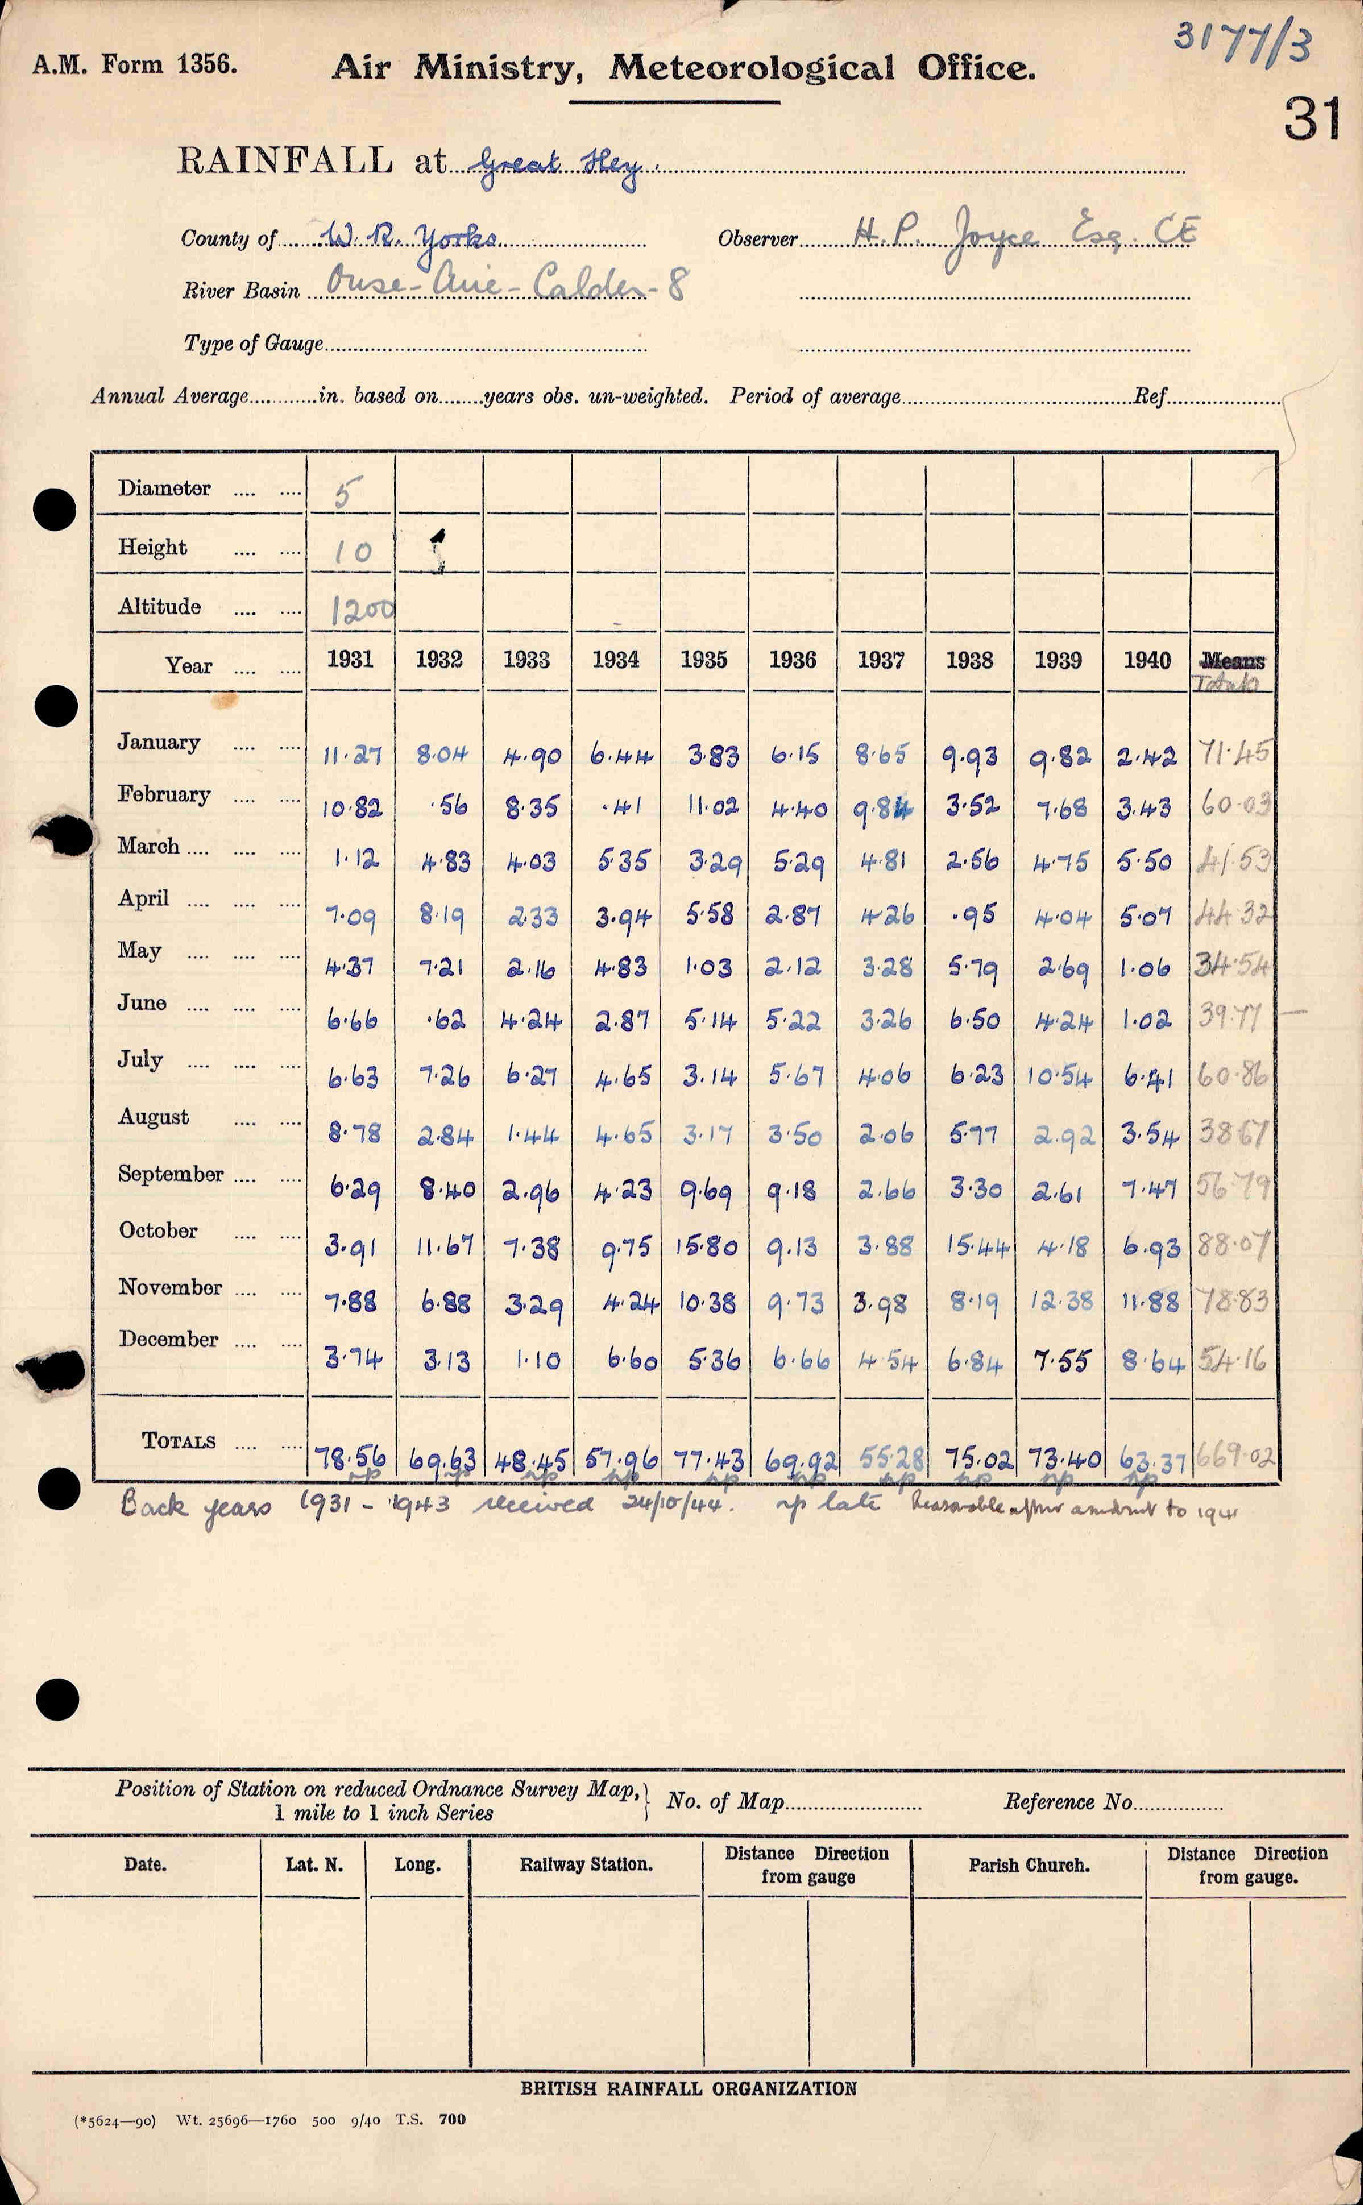 3177/3
A.M. Form 1356. Air Ministry, Meteorological Office.
31
RAINFALL at Great Hey.
County of W. R. Yorks. Observer H. P. Joyce Esq. CE
River Basin Ouse - Aire - Calder - 8
Type of Gauge
Annual Average in. based on years obs. un-weighted. Period of average Ref
Diameter 5
Height 10
Altitude 1200
Year 1931 1932 1933 1934 1935 1936 1937 1938 1939 1940 Means
Totals
January 11.27 8.04 4.90 6.44 3.83 6.15 8.65 9.93 9.82 2.42 71.45
February 10.82 .56 8.35 .41 11.02 4.40 9.84 3.52 7.68 3.43 60.03
March 1.12 4.83 4.03 5.35 3.29 5.29 4.81 2.56 4.75 5.50 41.53
April 7.09 8.19 2.33 3.94 5.58 2.87 4.26 .95 4.04 5.07 44.32
May 4.37 7.21 2.16 4.83 1.03 2.12 3.28 5.79 2.69 1.06 34.54
June 6.66 .62 4.24 2.87 5.14 5.22 3.26 6.50 4.24 1.02 39.77
July 6.63 7.26 6.27 4.65 3.14 5.67 4.06 6.23 10.54 6.41 60.86
August 8.78 2.84 1.44 4.65 3.17 3.50 2.06 5.77 2.92 3.54 38.67
September 6.29 8.40 2.96 4.23 9.69 9.18 2.66 3.30 2.61 7.47 56.79
October 3.91 11.67 7.38 9.75 15.80 9.13 3.88 15.44 4.18 6.93 88.07
November 7.88 6.88 3.29 4.24 10.38 9.73 3.98 8.19 12.38 11.88 78.83
December 3.74 3.13 1.10 6.60 5.36 6.66 4.54 6.84 7.55 8.64 54.16
TOTALS 78.56 69.63 48.45 57.96 77.43 69.92 55.28 75.02 73.40 63.37 669.02
np np np np np np np np np np
Back years 1931 - 1943 received 24/10/44. np late Reasonable after to 1941
Position of Station on reduced Ordnance Survey Map, No. of Map Reference No.
1 mile to 1 inch Series
Date. Lat. N. Long. Railway Station. Distance Direction from gauge Parish Church. Distance Direction from gauge.
BRITISH RAINFALL ORGANIZATION
(*5624—90) Wt. 25696—1760 500 9/40 T.S. 700